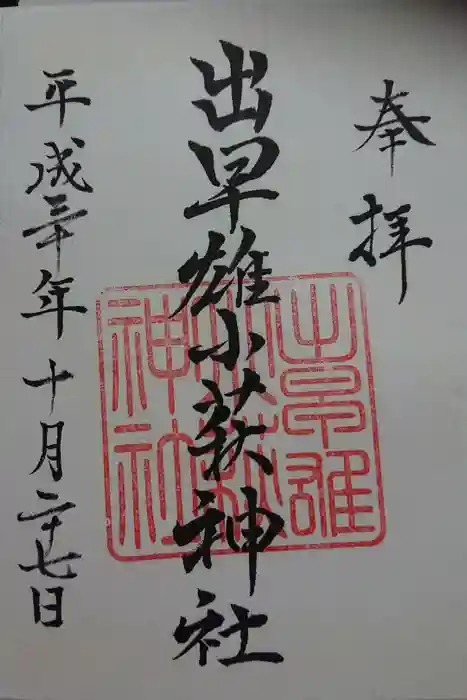 奉拝
出早雄小萩神社
平成三十年十月二十七日
出早雄
小萩
神社